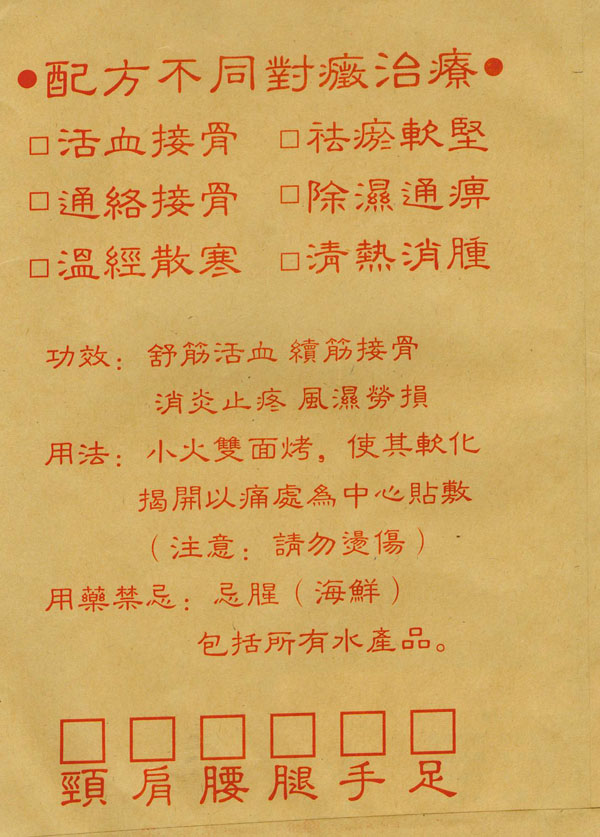 ●配方不同對癥治療●
□活血接骨 □祛瘀軟堅
□通絡接骨 □除濕通痹
□溫經散寒 □清熱消腫
功效：舒筋活血 續筋接骨
消炎止疼 風濕勞損
用法：小火雙面烤，使其軟化
揭開以痛處為中心貼敷
（注意：請勿燙傷）
用藥禁忌：忌腥（海鮮）
包括所有水產品。
□ □ □ □ □ □
頸 肩 腰 腿 手 足